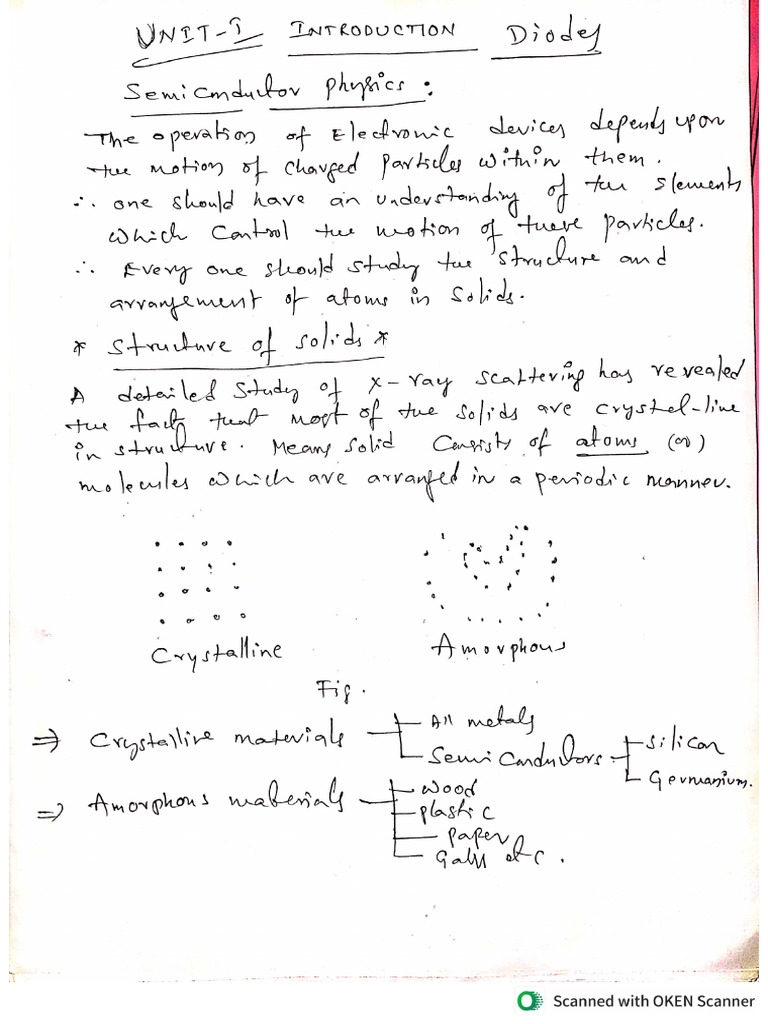 UNIT-I INTRODUCTION Diodes
Semiconductor Physics :
The operation of Electronic devices depends upon
the motion of charged particles within them.
∴ one should have an understanding of the Elements
which control the motion of these particles.
∴ Every one should study the structure and
arrangement of atoms in solids.
* Structure of solids *
A detailed study of X-ray scattering has revealed
the fact that most of the solids are crystal-line
in structure. Means solid consists of atoms (or)
molecules which are arranged in a periodic manner.
Crystalline Amorphous
Fig.
⇒ Crystalline materials All metals
Semi Conductors silicon
Germanium.
⇒ Amorphous materials wood
plastic
paper
etc.
Scanned with OKEN Scanner